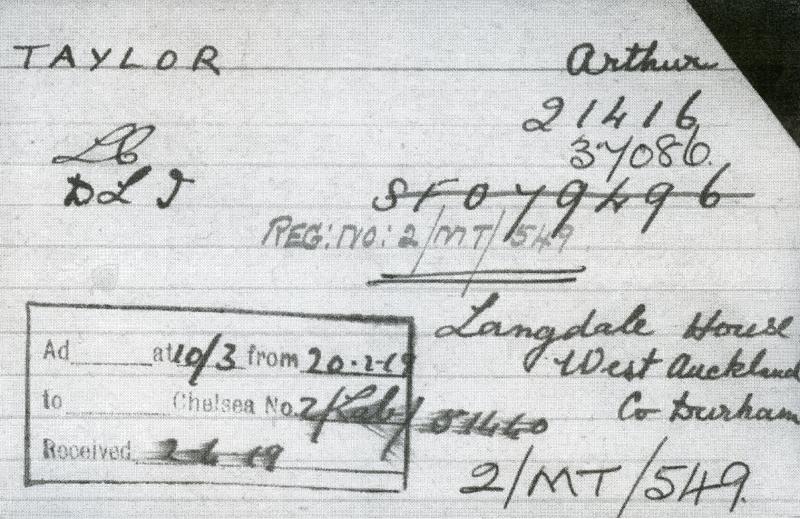 TAYLOR Arthur
21416
37086.
LC
DLI SF079496
REG: NO: 2/MT/549
Langdale House
West Auckland
Co Durham
Ad at 10/3 from 20-2-19
to Chelsea No. 2/Lab/51440
Received 2-4-19
2/MT/549.